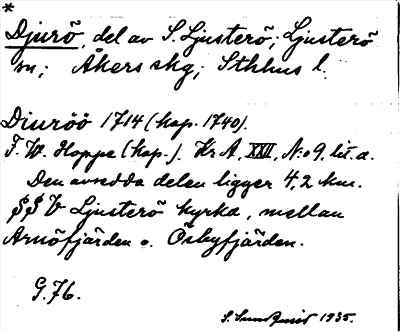 *
Djurö, del av S Ljusterö; Ljusterö
sn; Åkers skg; Sthlms l.
Diuröö 1714 (kop. 1740).
F. W. Hoppe (kop.). Kr. A, XXII, N:o 9, lit. a.
Den avsedda delen ligger 4,2 km.
S V Ljusterö kyrka, mellan
Arnöfjärden o. Östbyfjärden.
G. 76.
S. Sundquist 1935.